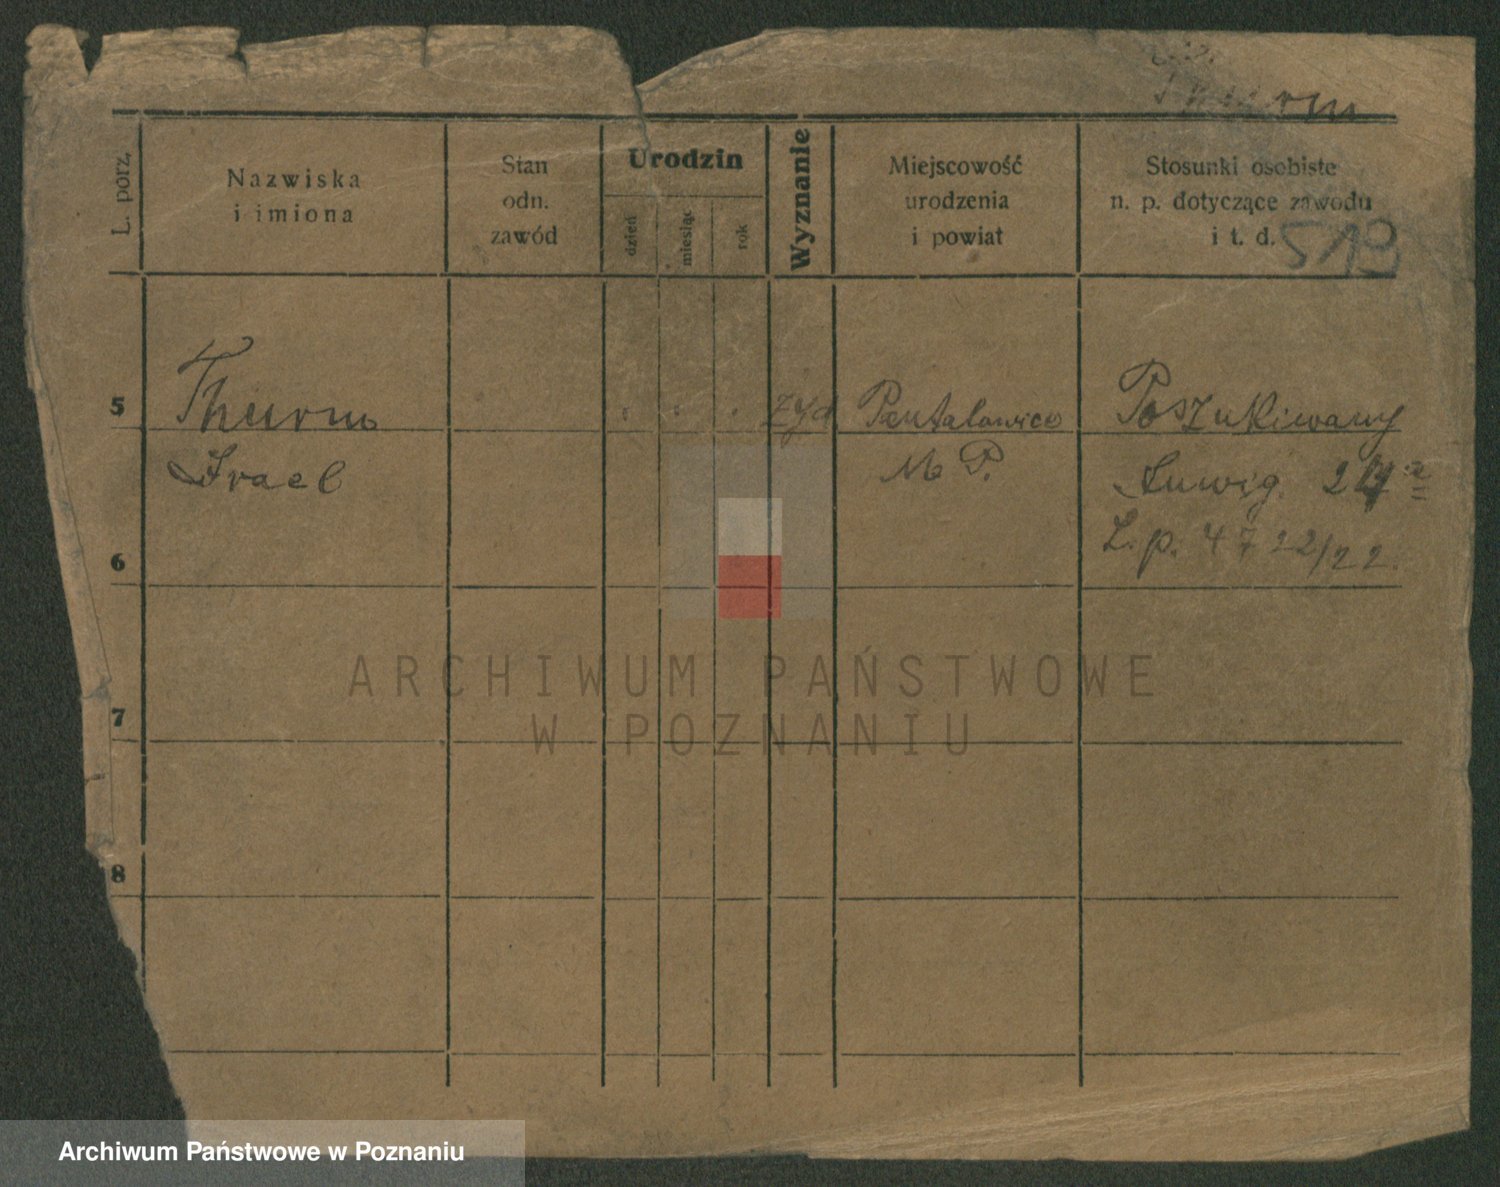 Thurm
L. porz.
Nazwiska
i imiona
Stan
odn.
zawód
Urodzin
dzień
miesiąc
rok
Wyznanie
Miejscowość
urodzenia
i powiat
Stosunki osobiste
n. p. dotyczące zawodu
i t. d.
519
5
Thurm
żyd
Pantalowice
Poszukiwany
Israel
M P.
24
6
L. p. 4722/22.
ARCHIWUM PAŃSTWOWE
W POZNANIU
7
8
Archiwum Państwowe w Poznaniu